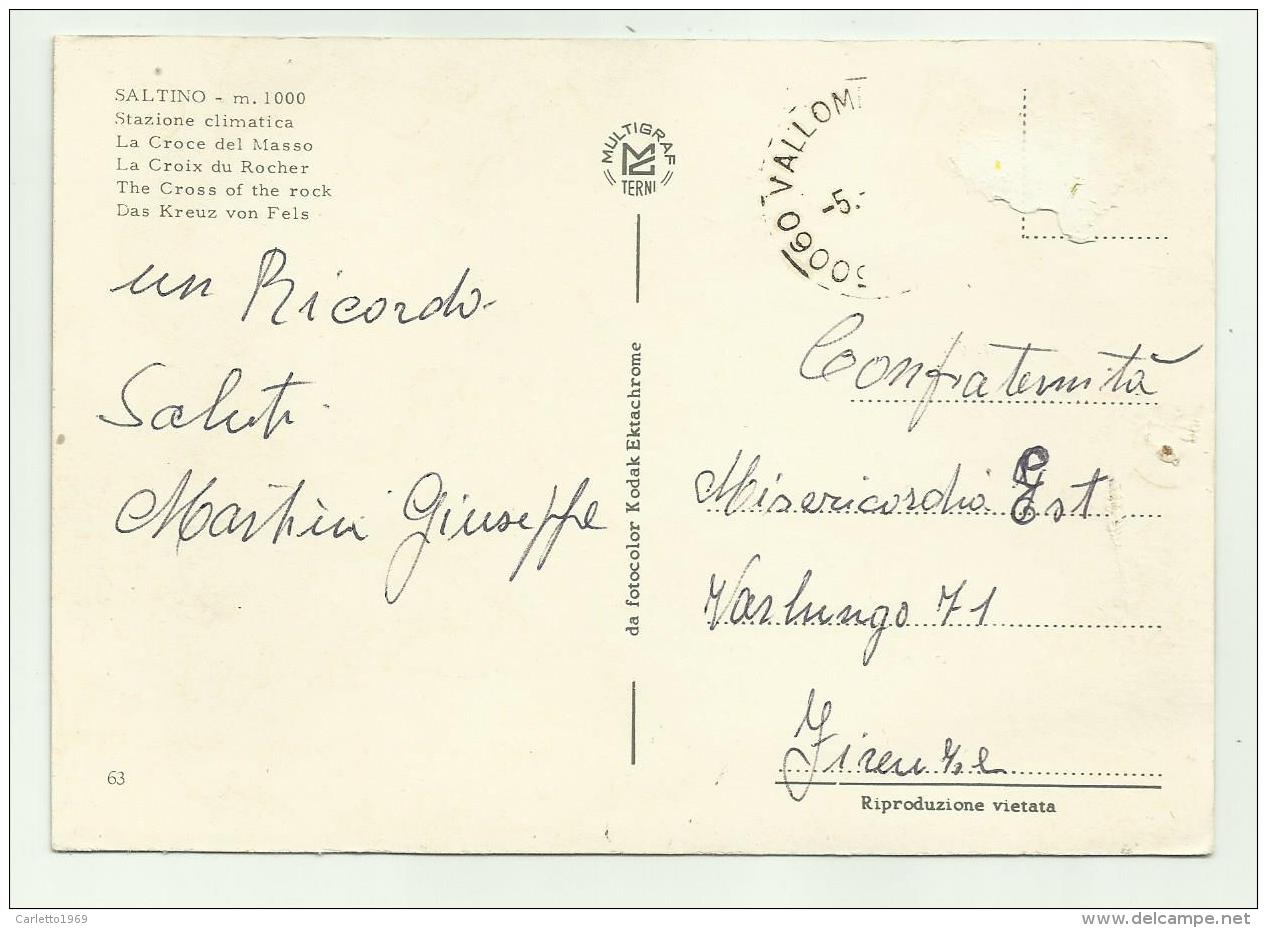 SALTINO - m. 1000
Stazione climatica
La Croce del Masso
La Croix du Rocher
The Cross of the rock
Das Kreuz von Fels
un Ricordo
Saluti
Martini Giuseppe
63
MULTIGRAF
TERNI
da fotocolor Kodak Ektachrome
VALLOM
-5.-
Confraternità
Misericordia Est
Varlungo 71
Firenze
Riproduzione vietata
Carletto1969
www.delcampe.net